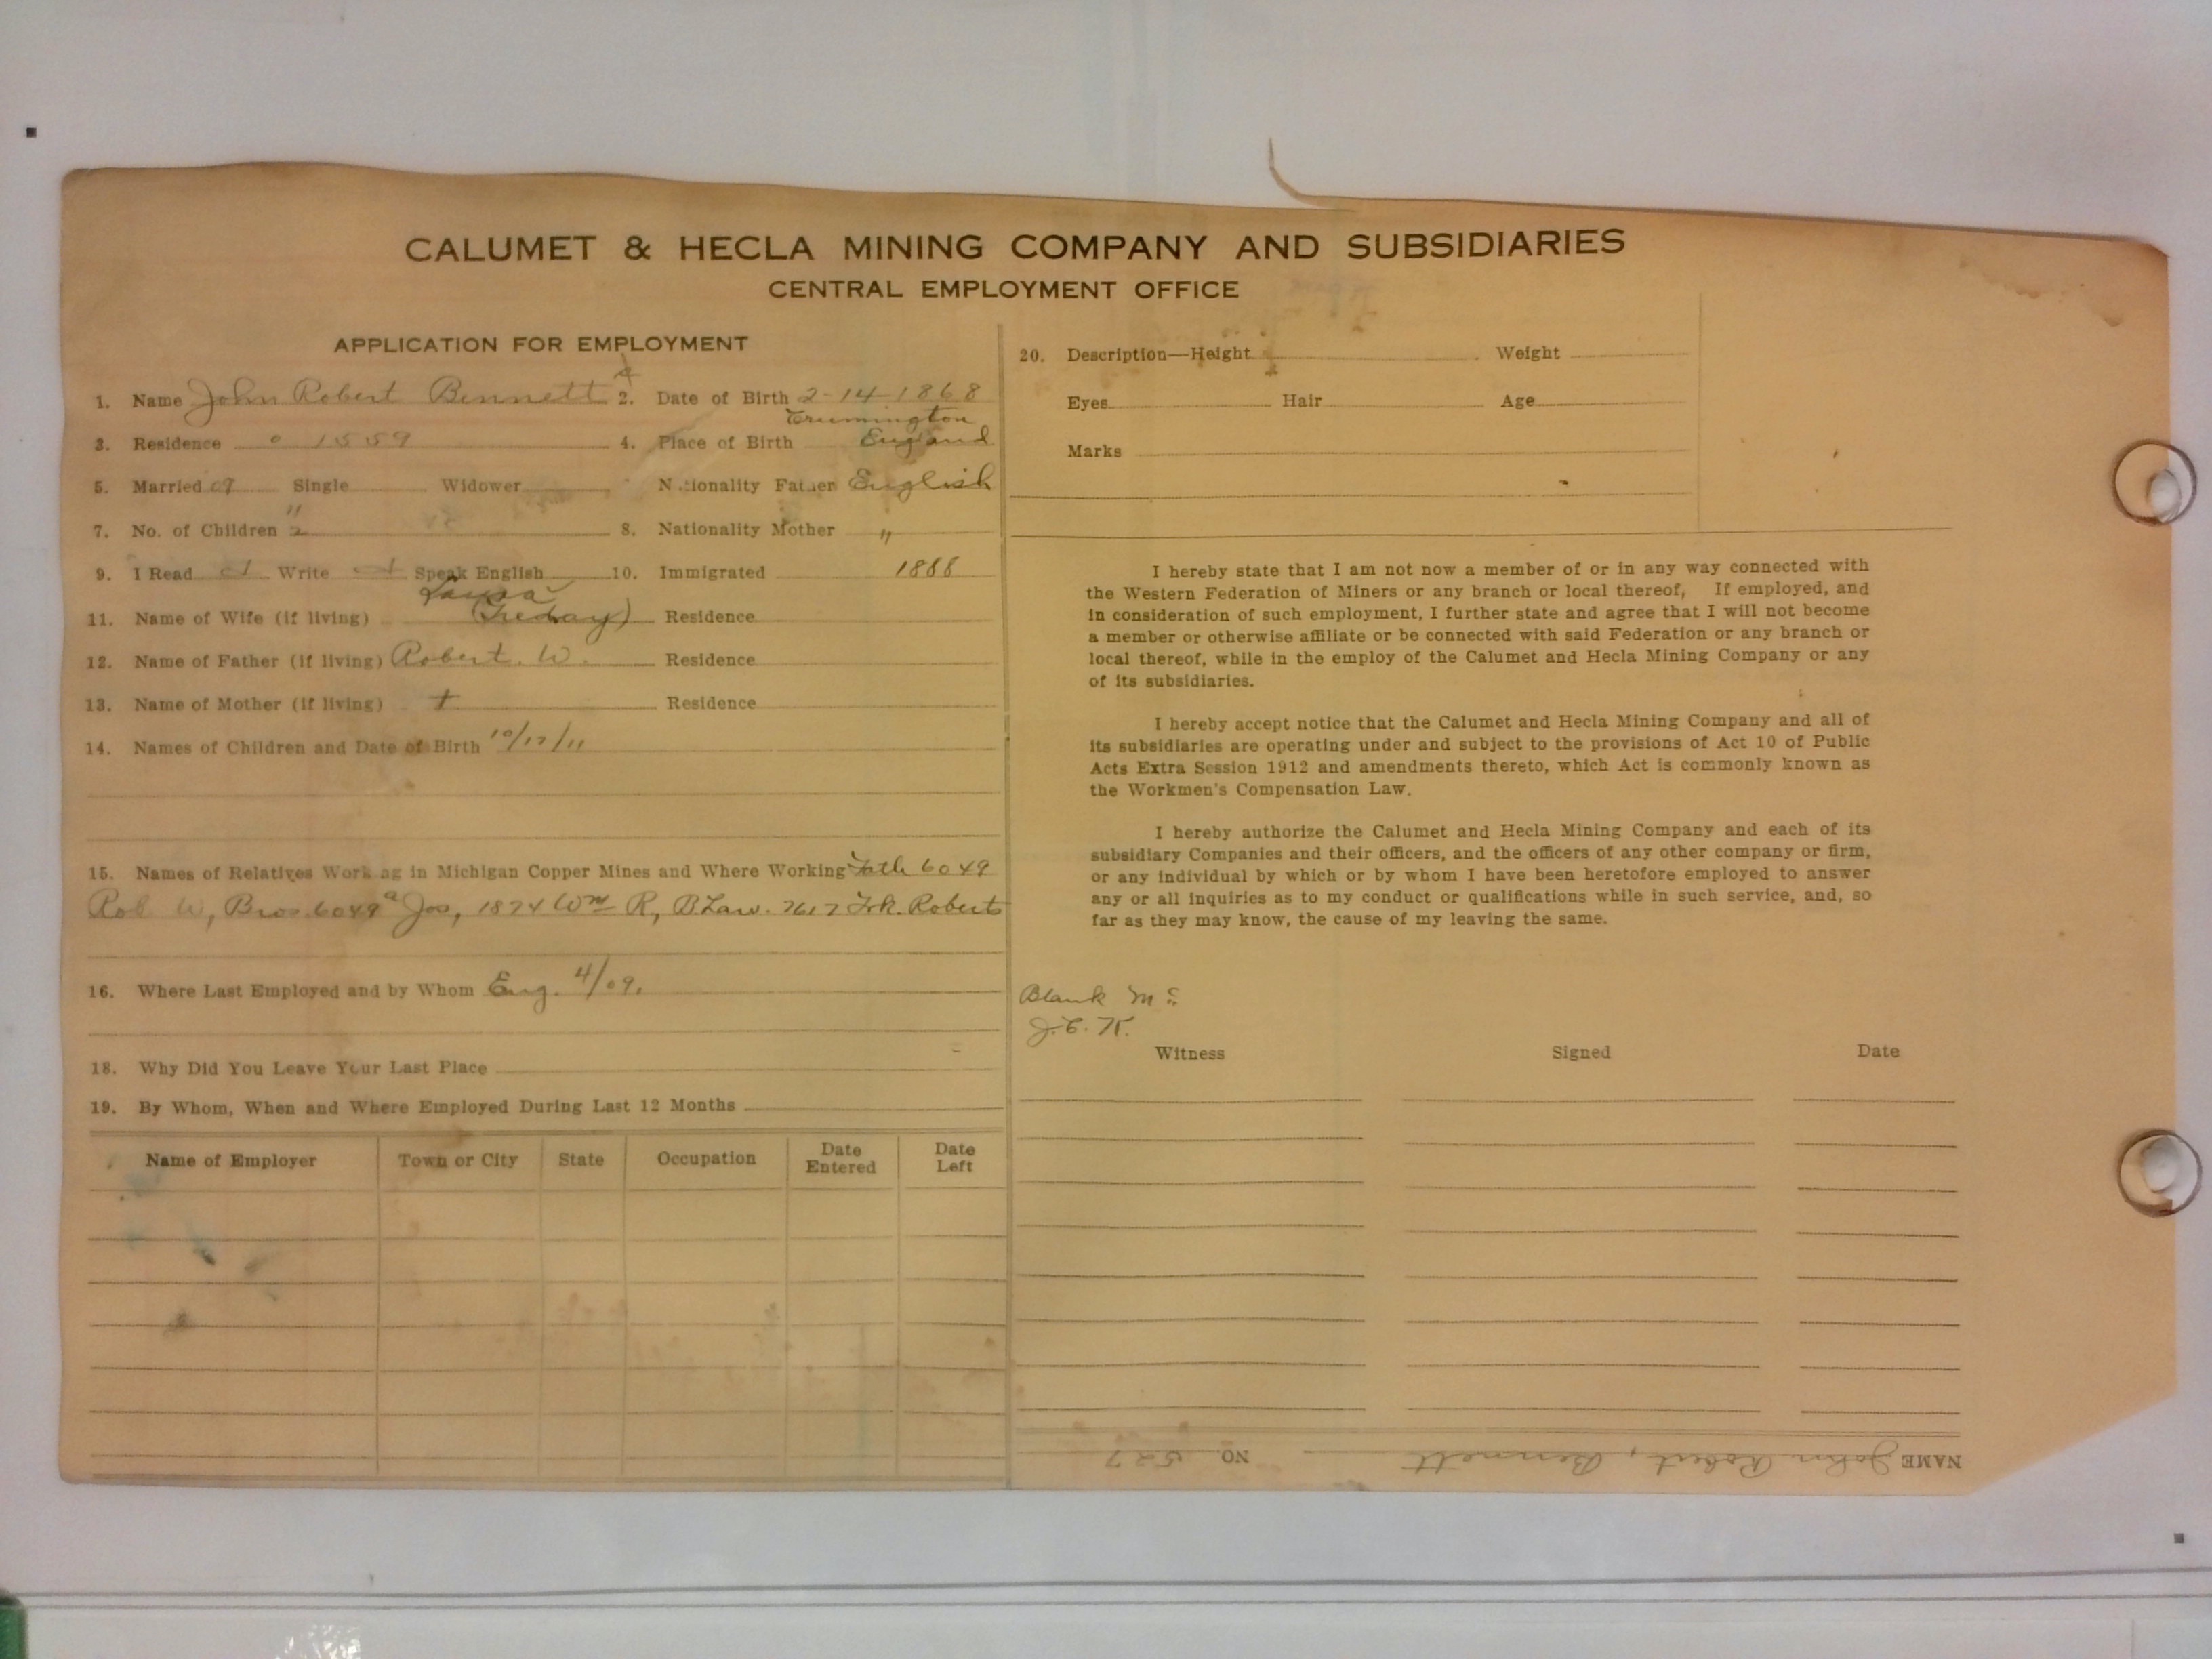 CALUMET & HECLA MINING COMPANY AND SUBSIDIARIES
CENTRAL EMPLOYMENT OFFICE
APPLICATION FOR EMPLOYMENT
1. Name John Robert Bennett 2. Date of Birth 2-14-1868
3. Residence 1559 4. Place of Birth England
5. Married 09 Single Widower Nationality Father English
7. No. of Children 8. Nationality Mother "
9. I Read Write Speak English 10. Immigrated 1888
Laura
11. Name of Wife (if living) Residence
12. Name of Father (if living) Robert. W. Residence
13. Name of Mother (if living) † Residence
14. Names of Children and Date of Birth 10/17/11
15. Names of Relatives Working in Michigan Copper Mines and Where Working Fath 6049
Rob W, Bros. 6049a Jos, 1874 Wm R, BLaw. 7617 Frk. Roberts
16. Where Last Employed and by Whom Eng. 4/09.
18. Why Did You Leave Your Last Place
19. By Whom, When and Where Employed During Last 12 Months
Name of Employer Town or City State Occupation Date Entered Date Left
20. Description—Height Weight
Eyes Hair Age
Marks
I hereby state that I am not now a member of or in any way connected with
the Western Federation of Miners or any branch or local thereof, If employed, and
in consideration of such employment, I further state and agree that I will not become
a member or otherwise affiliate or be connected with said Federation or any branch or
local thereof, while in the employ of the Calumet and Hecla Mining Company or any
of its subsidiaries.
I hereby accept notice that the Calumet and Hecla Mining Company and all of
its subsidiaries are operating under and subject to the provisions of Act 10 of Public
Acts Extra Session 1912 and amendments thereto, which Act is commonly known as
the Workmen's Compensation Law.
I hereby authorize the Calumet and Hecla Mining Company and each of its
subsidiary Companies and their officers, and the officers of any other company or firm,
or any individual by which or by whom I have been heretofore employed to answer
any or all inquiries as to my conduct or qualifications while in such service, and, so
far as they may know, the cause of my leaving the same.
Blank
Witness Signed Date
NAME John Robert, Bennett NO. 527